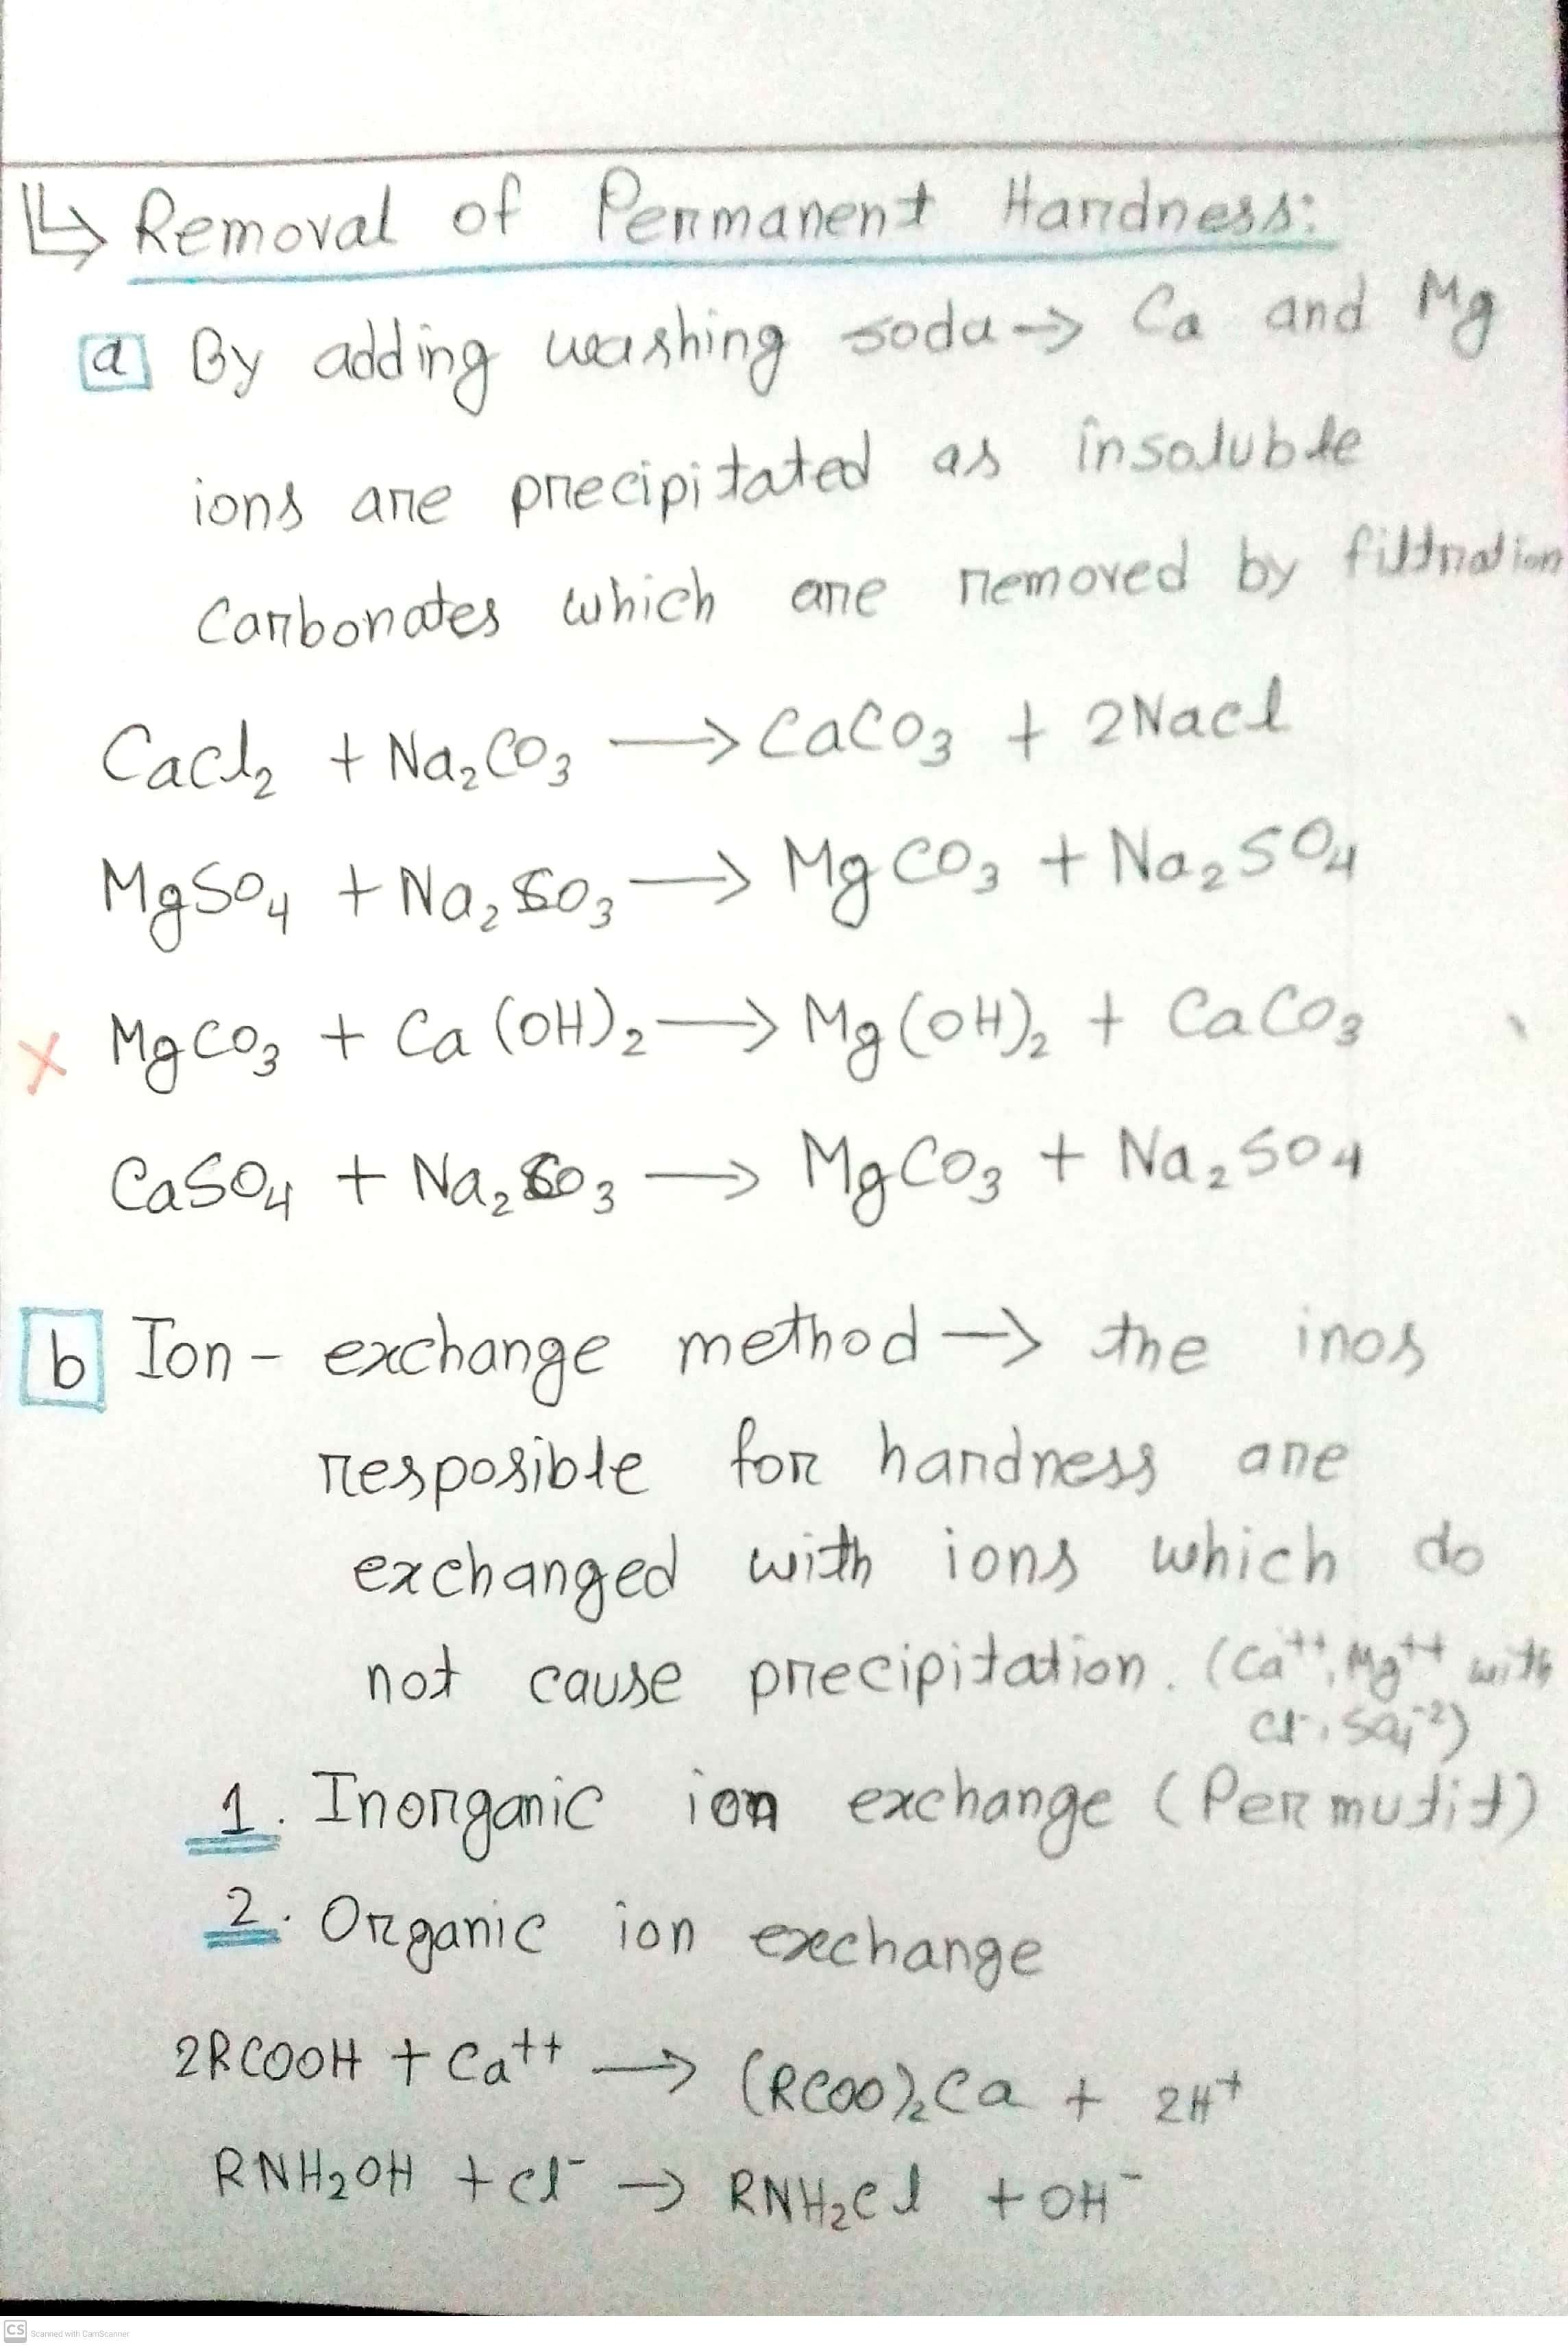 ↳ Removal of Permanent Hardness:
a By adding washing soda → Ca and Mg
ions are precipitated as insoluble
Carbonates which are removed by filtration
CaCl₂ + Na₂CO₃ → CaCO₃ + 2NaCl
MgSO₄ + Na₂CO₃ → MgCO₃ + Na₂SO₄
X MgCO₃ + Ca(OH)₂ → Mg(OH)₂ + CaCO₃
CaSO₄ + Na₂CO₃ → MgCO₃ + Na₂SO₄
b Ion - exchange method → the inos
resposible for hardness are
exchanged with ions which do
not cause precipitation. (Ca⁺⁺, Mg⁺⁺ with
Cl⁻, SO₄⁻²)
1. Inorganic ion exchange (Permutit)
2. Organic ion exchange
2RCOOH + Ca⁺⁺ → (RCOO)₂Ca + 2H⁺
RNH₂OH + Cl⁻ → RNH₂Cl + OH⁻
CS Scanned with CamScanner